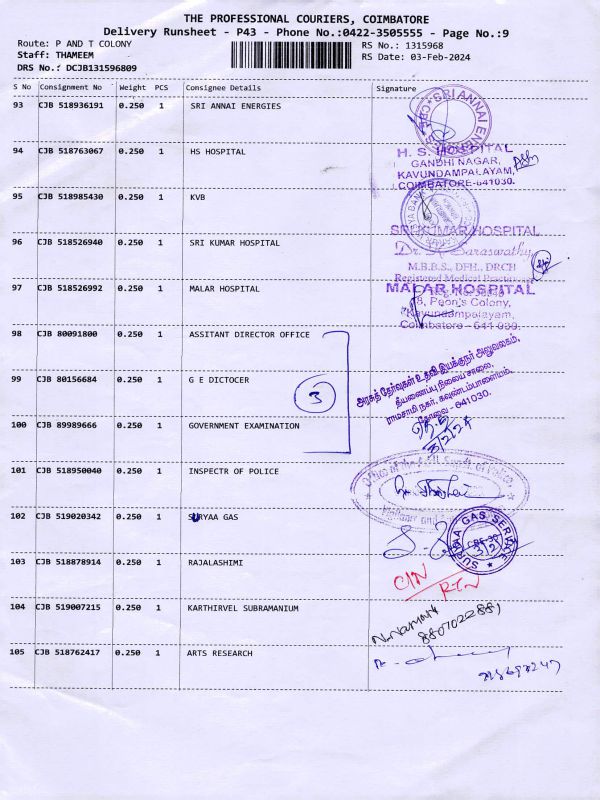 THE PROFESSIONAL COURIERS, COIMBATORE
Delivery Runsheet - P43 - Phone No.:0422-3505555 - Page No.:9
Route: P AND T COLONY
Staff: THAMEEM
DRS No.: DCJB131596809
RS No.: 1315968
RS Date: 03-Feb-2024
S No Consignment No Weight PCS Consignee Details Signature
93 CJB 518936191 0.250 1 SRI ANNAI ENERGIES
SRI ANNAI EN
94 CJB 518763067 0.250 1 HS HOSPITAL
H. S. HOSPITAL
GANDHI NAGAR,
KAVUNDAMPALAYAM,
COIMBATORE-641030.
95 CJB 518985430 0.250 1 KVB
96 CJB 518526940 0.250 1 SRI KUMAR HOSPITAL
SRI KUMAR HOSPITAL
Saraswathy
M.B.B.S., DFH., DRCH
Registered Medical
97 CJB 518526992 0.250 1 MALAR HOSPITAL
MALAR HOSPITAL
8, Peon's Colony,
Kavundampalayam,
Coimbatore - 641 030.
98 CJB 80091800 0.250 1 ASSITANT DIRECTOR OFFICE
99 CJB 80156684 0.250 1 G E DICTOCER
3
அரசுத் தேர்வுகள் உதவி இயக்குநர் அலுவலகம்,
தீயணைப்பு நிலைய சாலை,
ராமசாமி நகர், கவுண்டம்பாளையம்,
கோவை - 641030.
100 CJB 89989666 0.250 1 GOVERNMENT EXAMINATION
3/2/24
101 CJB 518950040 0.250 1 INSPECTR OF POLICE
102 CJB 519020342 0.250 1 SURYAA GAS
SURYAA GAS SERVICE
103 CJB 518878914 0.250 1 RAJALASHIMI
C/N
RTN
104 CJB 519007215 0.250 1 KARTHIRVEL SUBRAMANIUM
8807022881
105 CJB 518762417 0.250 1 ARTS RESEARCH